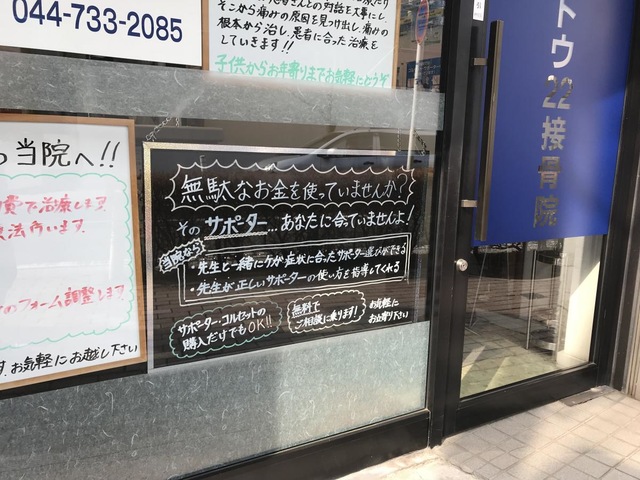 044-733-2085
そこから痛みの原因を見つけ出し、痛みの
根本から治し、患者に合った治療を
していきます!!
子供からお年寄りまでお気軽にどうぞ
当院へ!!
費で治療します
のフォーム調整します
お気軽にお越し下さい
無駄なお金を使っていませんか?
そのサポーター…あなたに合っていませんよ!
当院なら
・先生と一緒にケガ症状に合ったサポーター選びができる
・先生が正しいサポーターの使い方を指導してくれる
サポーター・コルセットの
購入だけでもOK!!
無料で
ご相談に乗ります!
お気軽に
お立寄り下さい
トウ22接骨院